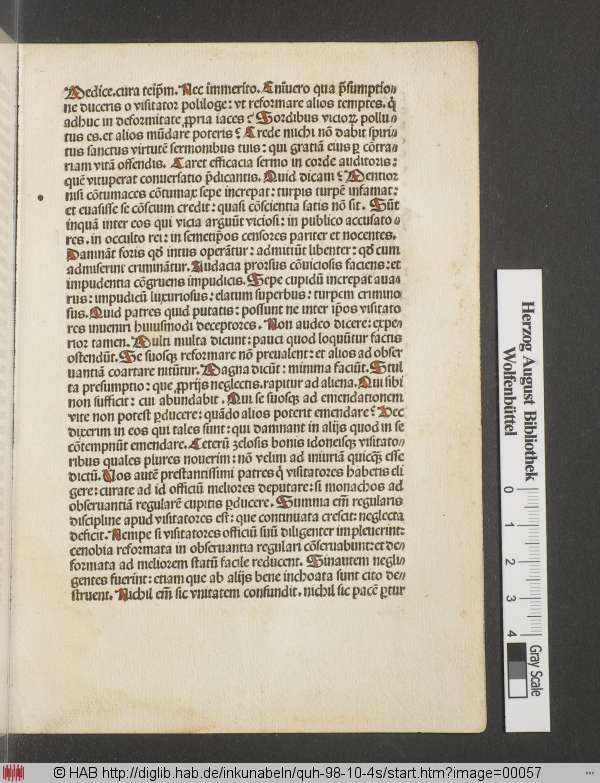 Medice.cura teip̄m. Nec īmerito. Cn̄iuero qua p̄sumptio⸗
ne duceris o visitator poliloge: vt reformare alios temptes. q̇
adhuc in deformitate ꝓpria iaces? Sordibus vicioꝝ pollu⸗
tus es. et alios mūdare poteris? Crede michi nō dabit spiri⸗
tus sanctus virtutē sermonibus tuis: qui gratiā eius ꝑ cōtra⸗
riam vitā offendis. Caret efficacia sermo in corde auditoris:
quē vituperat conuersatio p̄dicantis. Quid dicam? Mentior
nisi cōtumaces cōtumax sepe increpat: turpis turpē infamat:
et euasisse se cōscium credit: quasi cōscientia satis nō sit. Sūt
inquā inter eos qui vicia arguūt viciosi: in publico accusato⸗
res. in occulto rei: in semetip̄os censores pariter et nocentes.
Damnāt foris qd̄ intus operātur: admittūt libenter: qd̄ cum
admiserint criminātur. Audacia prorsus cōuiciosis faciens: et
impudentia cōgruens impudicis. Sepe cupidū increpat aua⸗
rus: impudicū luxuriosus: elatum superbus: turpem crimino
sus. Quid patres quid putatis: possunt ne inter ip̄os visitato
res inueniri huiusmodi deceptores. Non audeo dicere: expe⸗
rior tamen. Multi multa dicunt: pauci quod loquūtur factis
ostendūt. Se suosqꝫ reformare nō preualent: et alios ad obser
uantiā coartare nitūtur. Magna dicūt: minima faciūt. Stul
ta presumptio: que ꝓprijs neglectis. rapitur ad aliena. Qui sibi
non sufficit: cui abundabit. Qui se suosqꝫ ad emendationem
vite non potest ꝑducere: quādo alios poterit emendare? Hec
dixerim in eos qui tales sunt: qui damnant in alijs quod in se
cōtempnūt emendare. Ceterū zelosis bonis idoneisqꝫ visitato⸗
ribus quales plures nouerim: nō velim ad iniuriā quicqꝫ esse
dictū. Vos autē prestantissimi patres q̇ visitatores habetis eli
gere: curate ad id officiū meliores deputare: si monachos ad
obseruantiā regularē cupitis ꝑducere. Summa em̄ regularis
discipline apud visitatores est: que continuata crescit: neglecta
deficit. Nempe si visitatores officiū suū diligenter impleuerint:
cenobia reformata in obseruantia regulari cōseruabunt: et de⸗
formata ad meliorem statū facile reducent. Sinautem negli⸗
gentes fuerint: etiam que ab alijs bene inchoata sunt cito de⸗
struent. Nichil em̄ sic vnitatem confundit. nichil sic pacē ꝑtur
Herzog August Bibliothek
Wolfenbüttel
0 1 2 3 4
Gray Scale
© HAB http://diglib.hab.de/inkunabeln/quh-98-10-4s/start.htm?image=00057